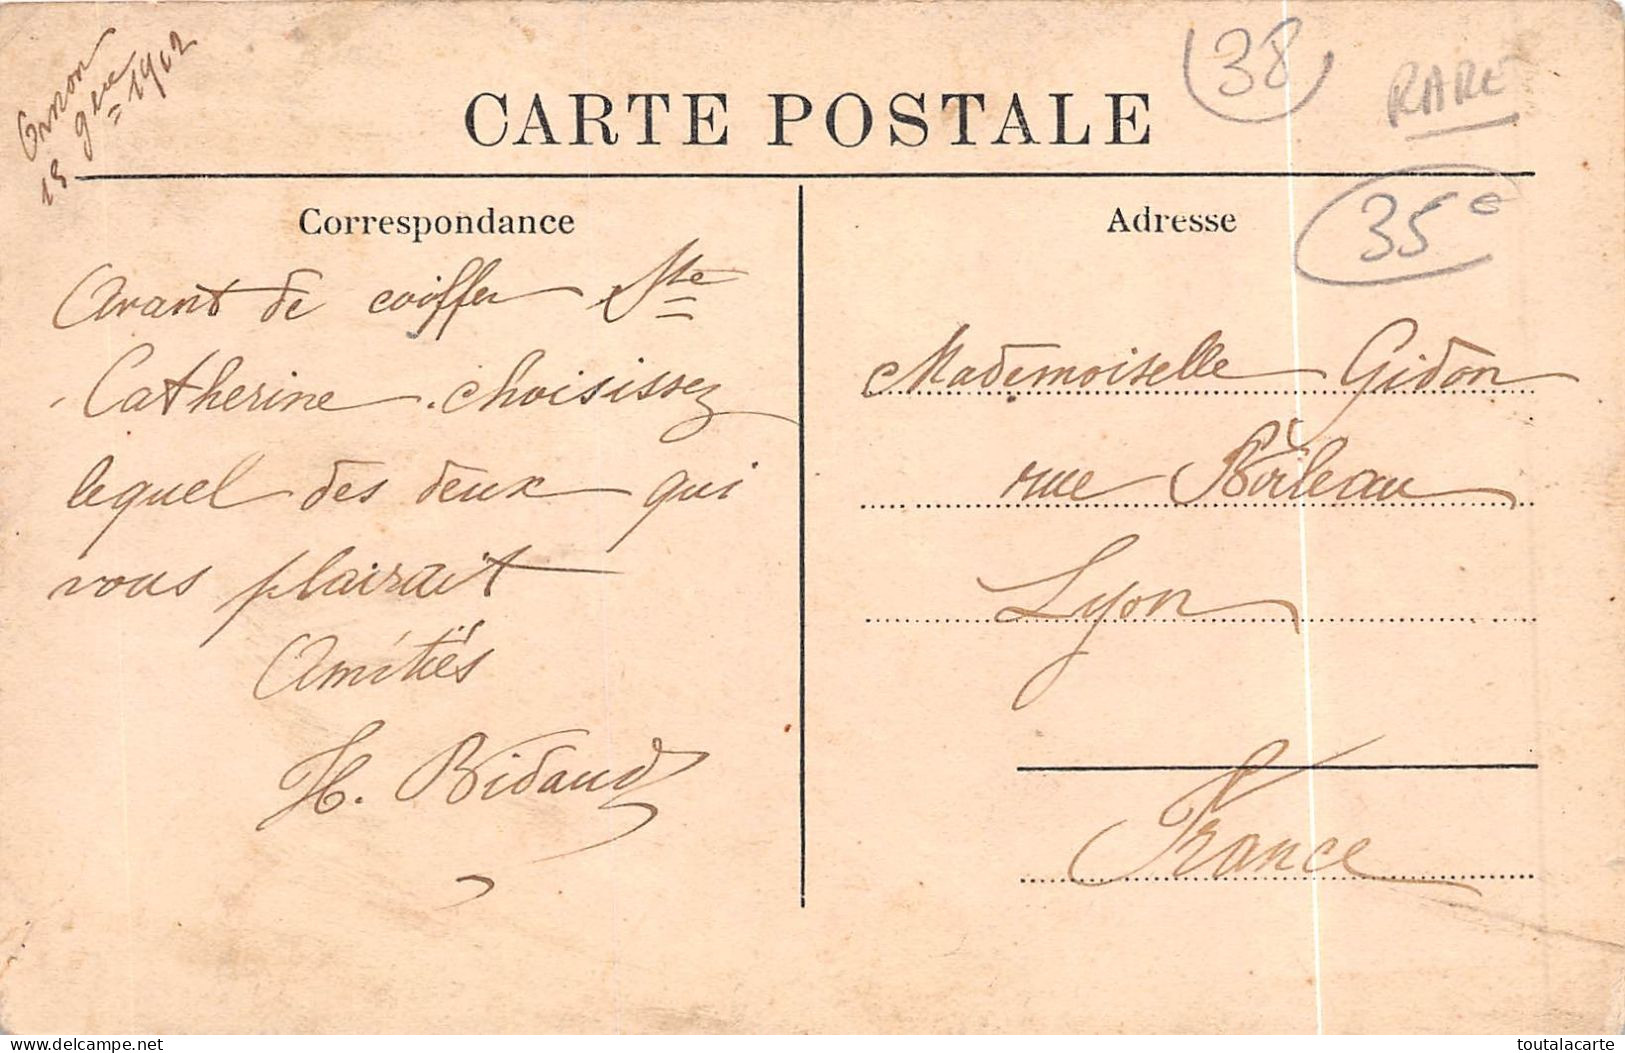 Ornon
15 9bre 1912
38
RARE
CARTE POSTALE
35€
Correspondance
Adresse
Avant de coiffer Ste
Catherine choisissez
lequel des deux qui
vous plairait
Amitiés
H. Bidaud
Mademoiselle Gidon
rue Boileau
Lyon
France
delcampe.net
toutalacarte